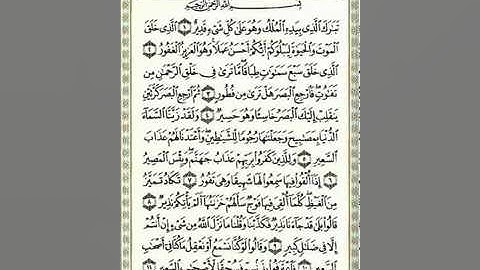 بِسْمِ ٱللَّهِ ٱلرَّحْمَٰنِ ٱلرَّحِيمِ
تَبَٰرَكَ ٱلَّذِى بِيَدِهِ ٱلْمُلْكُ وَهُوَ عَلَىٰ كُلِّ شَىْءٍ قَدِيرٌ ١ ٱلَّذِى خَلَقَ
ٱلْمَوْتَ وَٱلْحَيَوٰةَ لِيَبْلُوَكُمْ أَيُّكُمْ أَحْسَنُ عَمَلًا وَهُوَ ٱلْعَزِيزُ ٱلْغَفُورُ ٢
ٱلَّذِى خَلَقَ سَبْعَ سَمَٰوَٰتٍ طِبَاقًا مَّا تَرَىٰ فِى خَلْقِ ٱلرَّحْمَٰنِ مِن
تَفَٰوُتٍ فَٱرْجِعِ ٱلْبَصَرَ هَلْ تَرَىٰ مِن فُطُورٍ ٣ ثُمَّ ٱرْجِعِ ٱلْبَصَرَ كَرَّتَيْنِ
يَنقَلِبْ إِلَيْكَ ٱلْبَصَرُ خَاسِئًا وَهُوَ حَسِيرٌ ٤ وَلَقَدْ زَيَّنَّا ٱلسَّمَآءَ
ٱلدُّنْيَا بِمَصَٰبِيحَ وَجَعَلْنَٰهَا رُجُومًا لِّلشَّيَٰطِينِ وَأَعْتَدْنَا لَهُمْ عَذَابَ
ٱلسَّعِيرِ ٥ وَلِلَّذِينَ كَفَرُوا۟ بِرَبِّهِمْ عَذَابُ جَهَنَّمَ وَبِئْسَ ٱلْمَصِيرُ
٦ إِذَآ أُلْقُوا۟ فِيهَا سَمِعُوا۟ لَهَا شَهِيقًا وَهِىَ تَفُورُ ٧ تَكَادُ تَمَيَّزُ
مِنَ ٱلْغَيْظِ كُلَّمَآ أُلْقِىَ فِيهَا فَوْجٌ سَأَلَهُمْ خَزَنَتُهَآ أَلَمْ يَأْتِكُمْ نَذِيرٌ ٨
قَالُوا۟ بَلَىٰ قَدْ جَآءَنَا نَذِيرٌ فَكَذَّبْنَا وَقُلْنَا مَا نَزَّلَ ٱللَّهُ مِن شَىْءٍ إِنْ أَنتُمْ
إِلَّا فِى ضَلَٰلٍ كَبِيرٍ ٩ وَقَالُوا۟ لَوْ كُنَّا نَسْمَعُ أَوْ نَعْقِلُ مَا كُنَّا فِىٓ أَصْحَٰبِ
ٱلسَّعِيرِ ١٠ فَٱعْتَرَفُوا۟ بِذَنۢبِهِمْ فَسُحْقًا لِّأَصْحَٰبِ ٱلسَّعِيرِ ١١